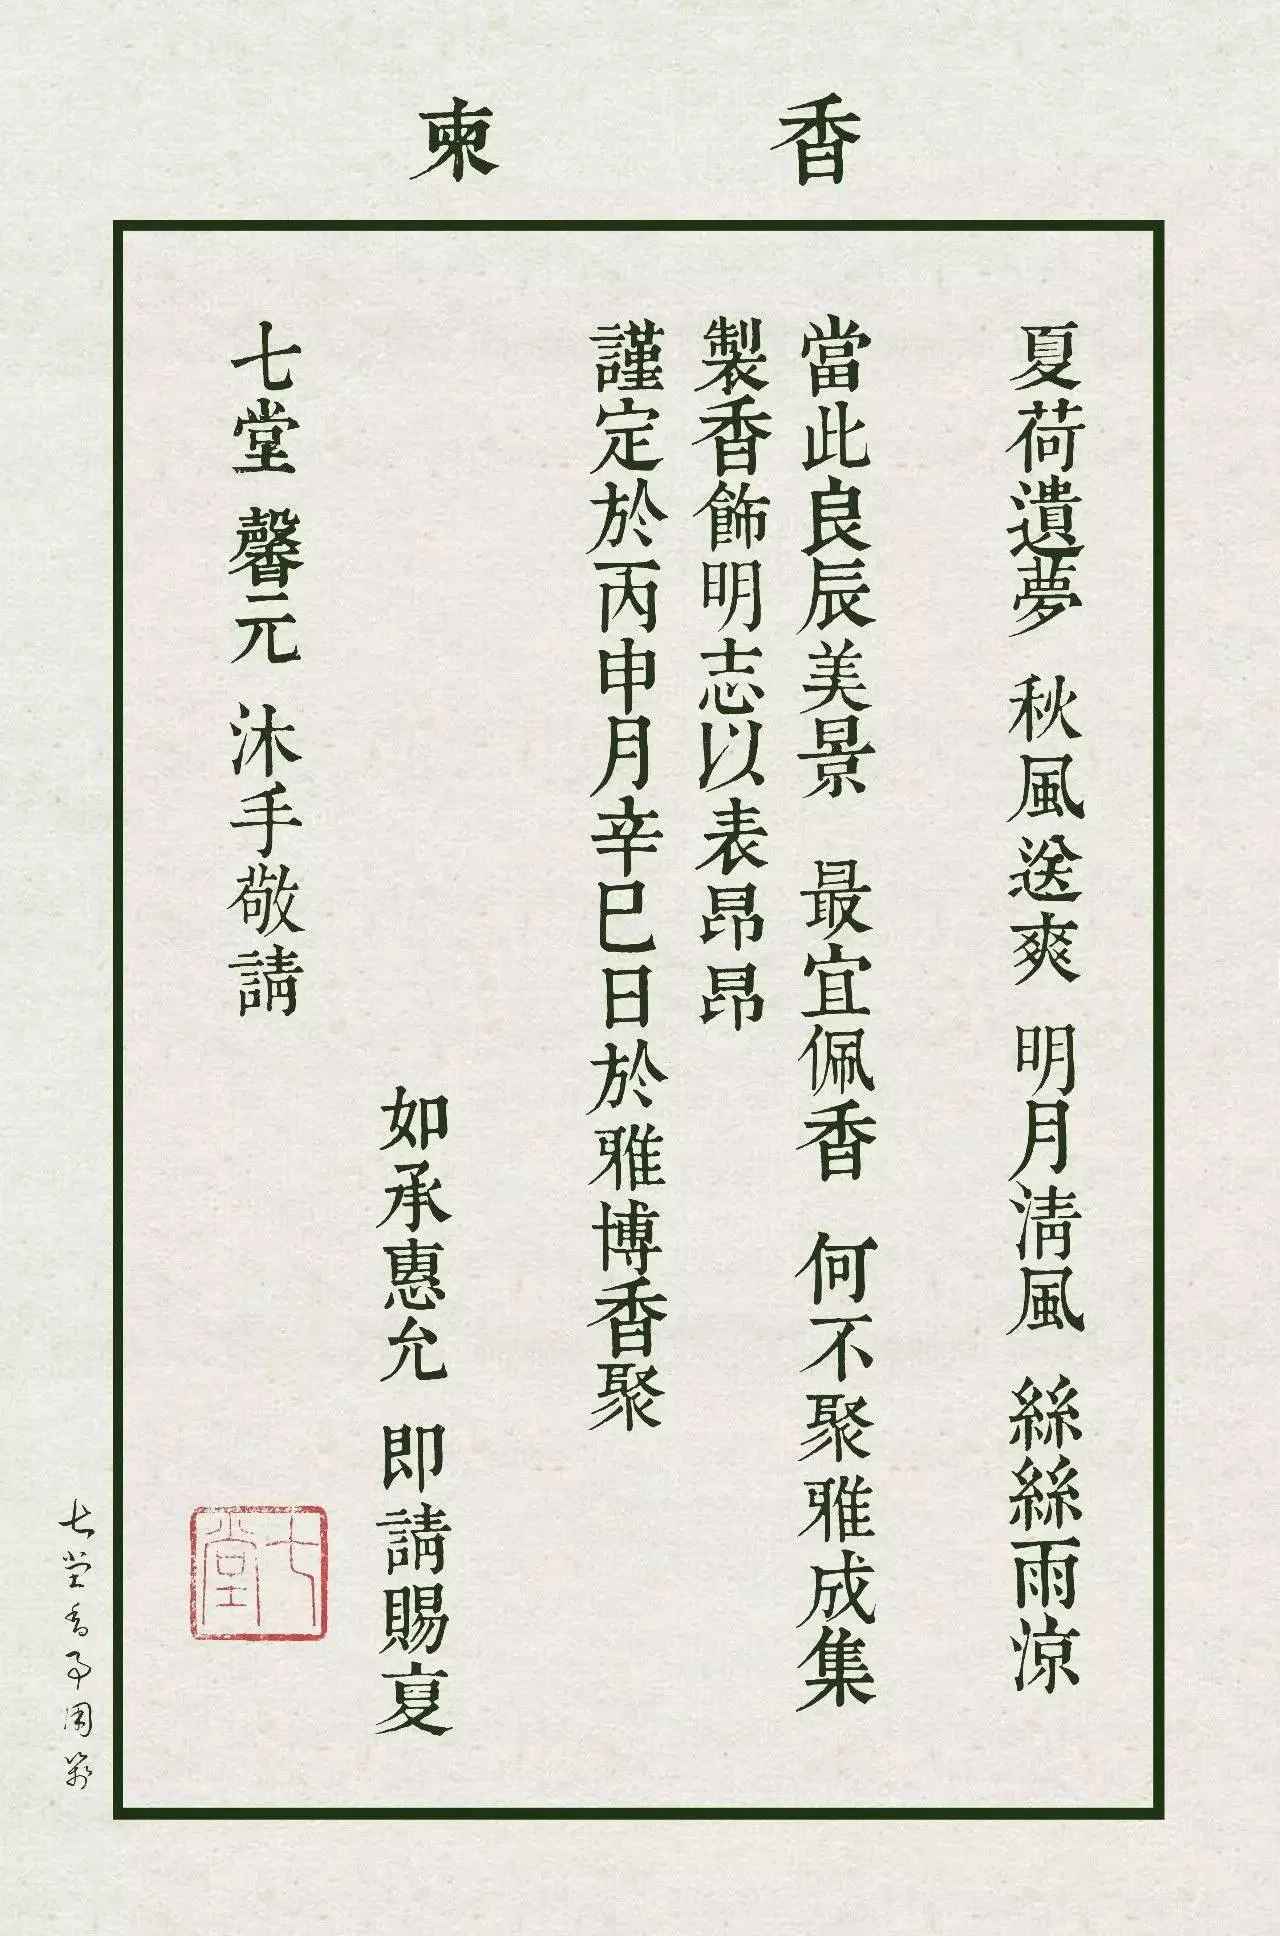 香柬
夏荷遺夢 秋風送爽 明月清風 絲絲雨涼
當此良辰美景 最宜佩香 何不聚雅成集
製香飾明志以表昂昂
謹定於丙申月辛巳日於雅博香聚
如承惠允 即請賜夏
七堂 馨元 沐手敬請
七堂
七堂香事用箋